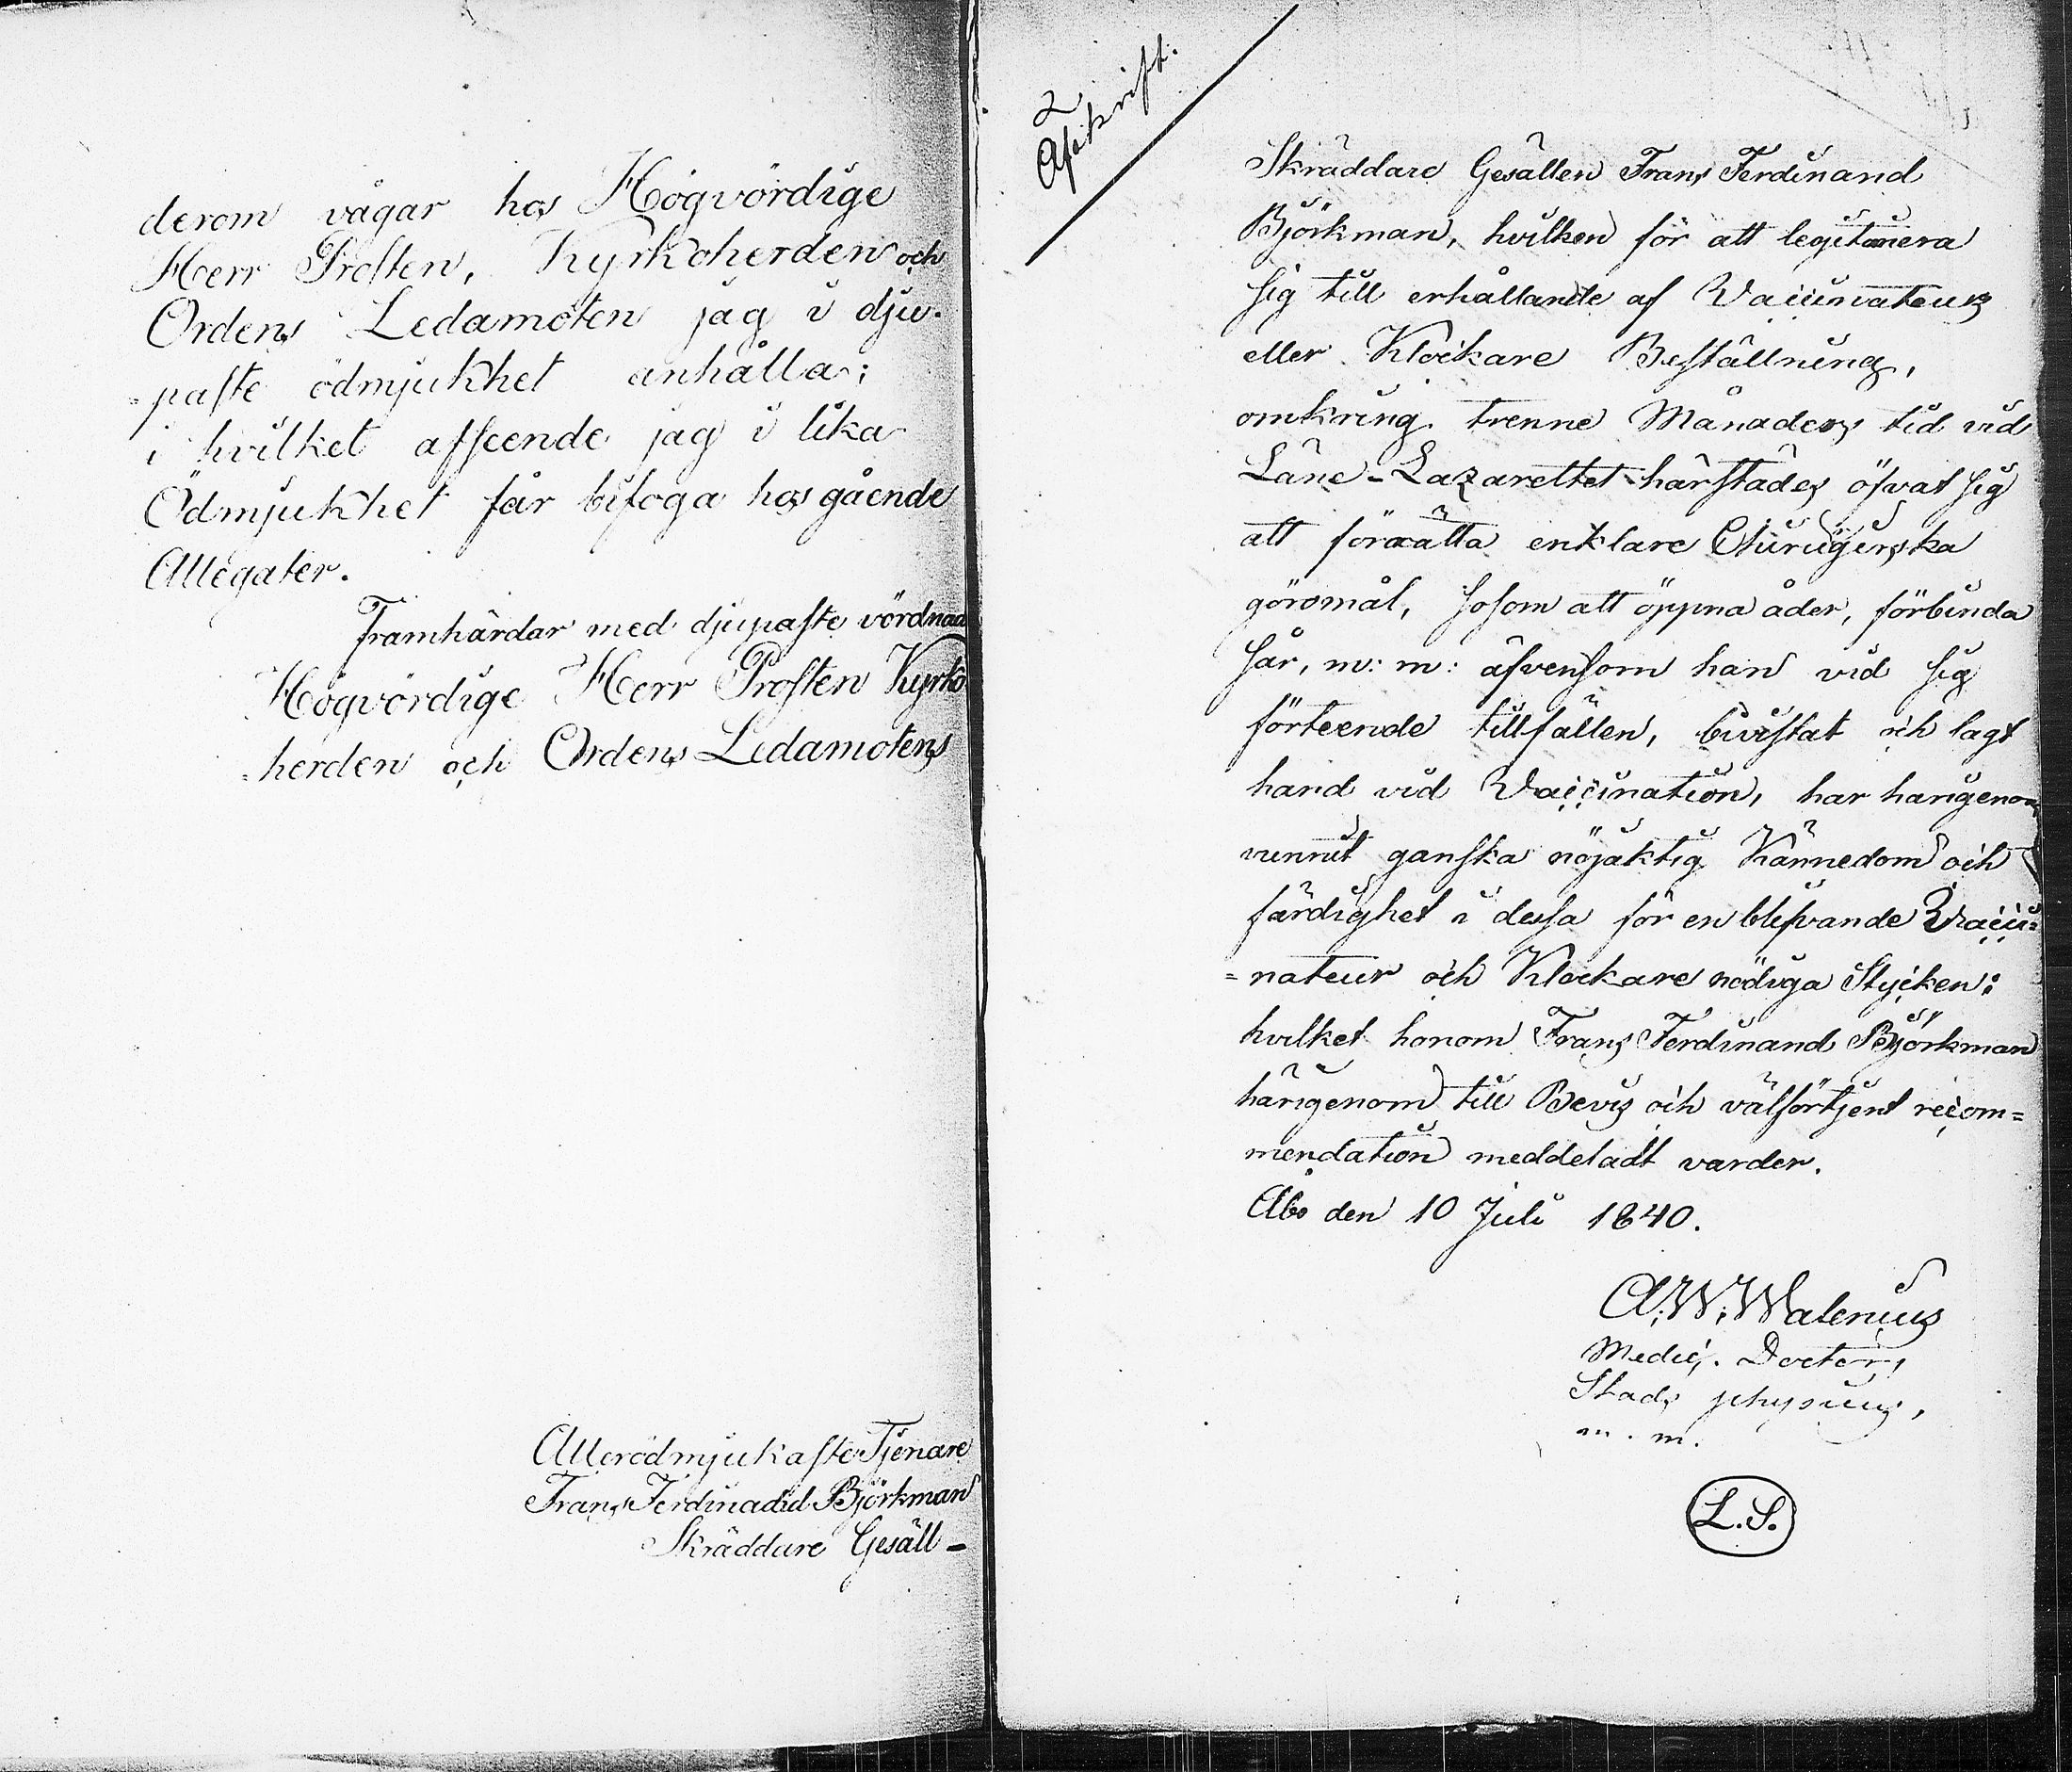 derom vågar hos Högvördige
Herr Prosten, Kyrkoherden och
Ordens Ledamoten jag i dju-
paste ödmjukhet anhålla;
i hvilket afseende jag i lika
Ödmjukhet får bifoga hosgående
Allegater.
Framhärdar med djupaste vördnad
Högvördige Herr Prosten Kyrko
herden och Ordens Ledamotens
Allerödmjukaste Tjenare
Frans Ferdinadid Björkman
Skräddare Gesäll -
2
Afskrift.
Skräddare Gesällen Frans Ferdinand
Björkman, hvilken för att legitimera
sig till erhållande af Vaccinateurs
eller Klockare Beställning,
omkring trenne Månaders tid vid
Läne-Lazarettet härstädes öfvat sig
att förrätta enklare Chirurgiska
göromål, såsom att öppna åder, förbinda
sår, m: m: äfvensom han vid sig
förteende tillfällen, bivistat och lagt
hand vid Vaccination, har harigenom
vunnit ganska nöjaktig Kännedom och
färdighet i dessa för en blifvande Vacci=
=nateur och Klockare nödiga Stycken:
hvilket honom Frans Ferdinand Björkman
härigenom till Bevis och välförtjent recom=
mendation meddeladt varder.
Åbo den 10 Juli 1840.
A. W. Walenius
Medic. Doctor,
Stads physicus,
m. m.
L.S.